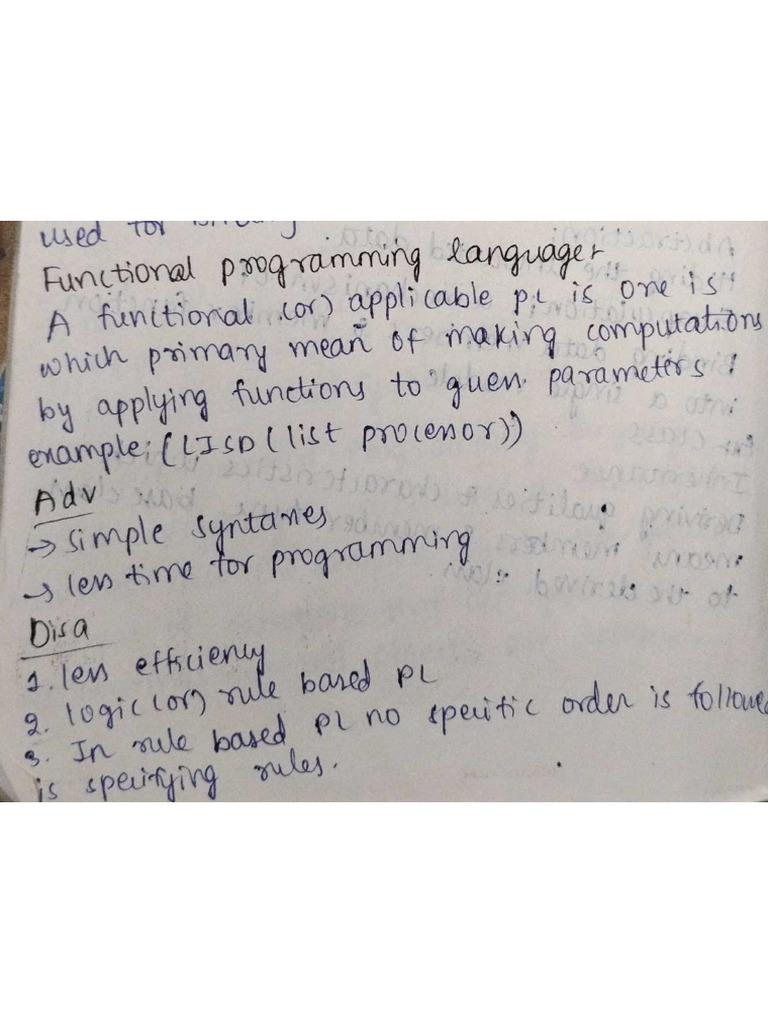 used for
Functional programming language:-
A functional (or) applicable PL is one is
which primary mean of making computations
by applying functions to guen parameters.
example: (LISD (list processor))
Adv
→ simple syntaxes
→ less time for programming
Disa
1. less efficiency
2. logic (or) rule based PL
3. In rule based PL no specific order is followed
is specifying rules.